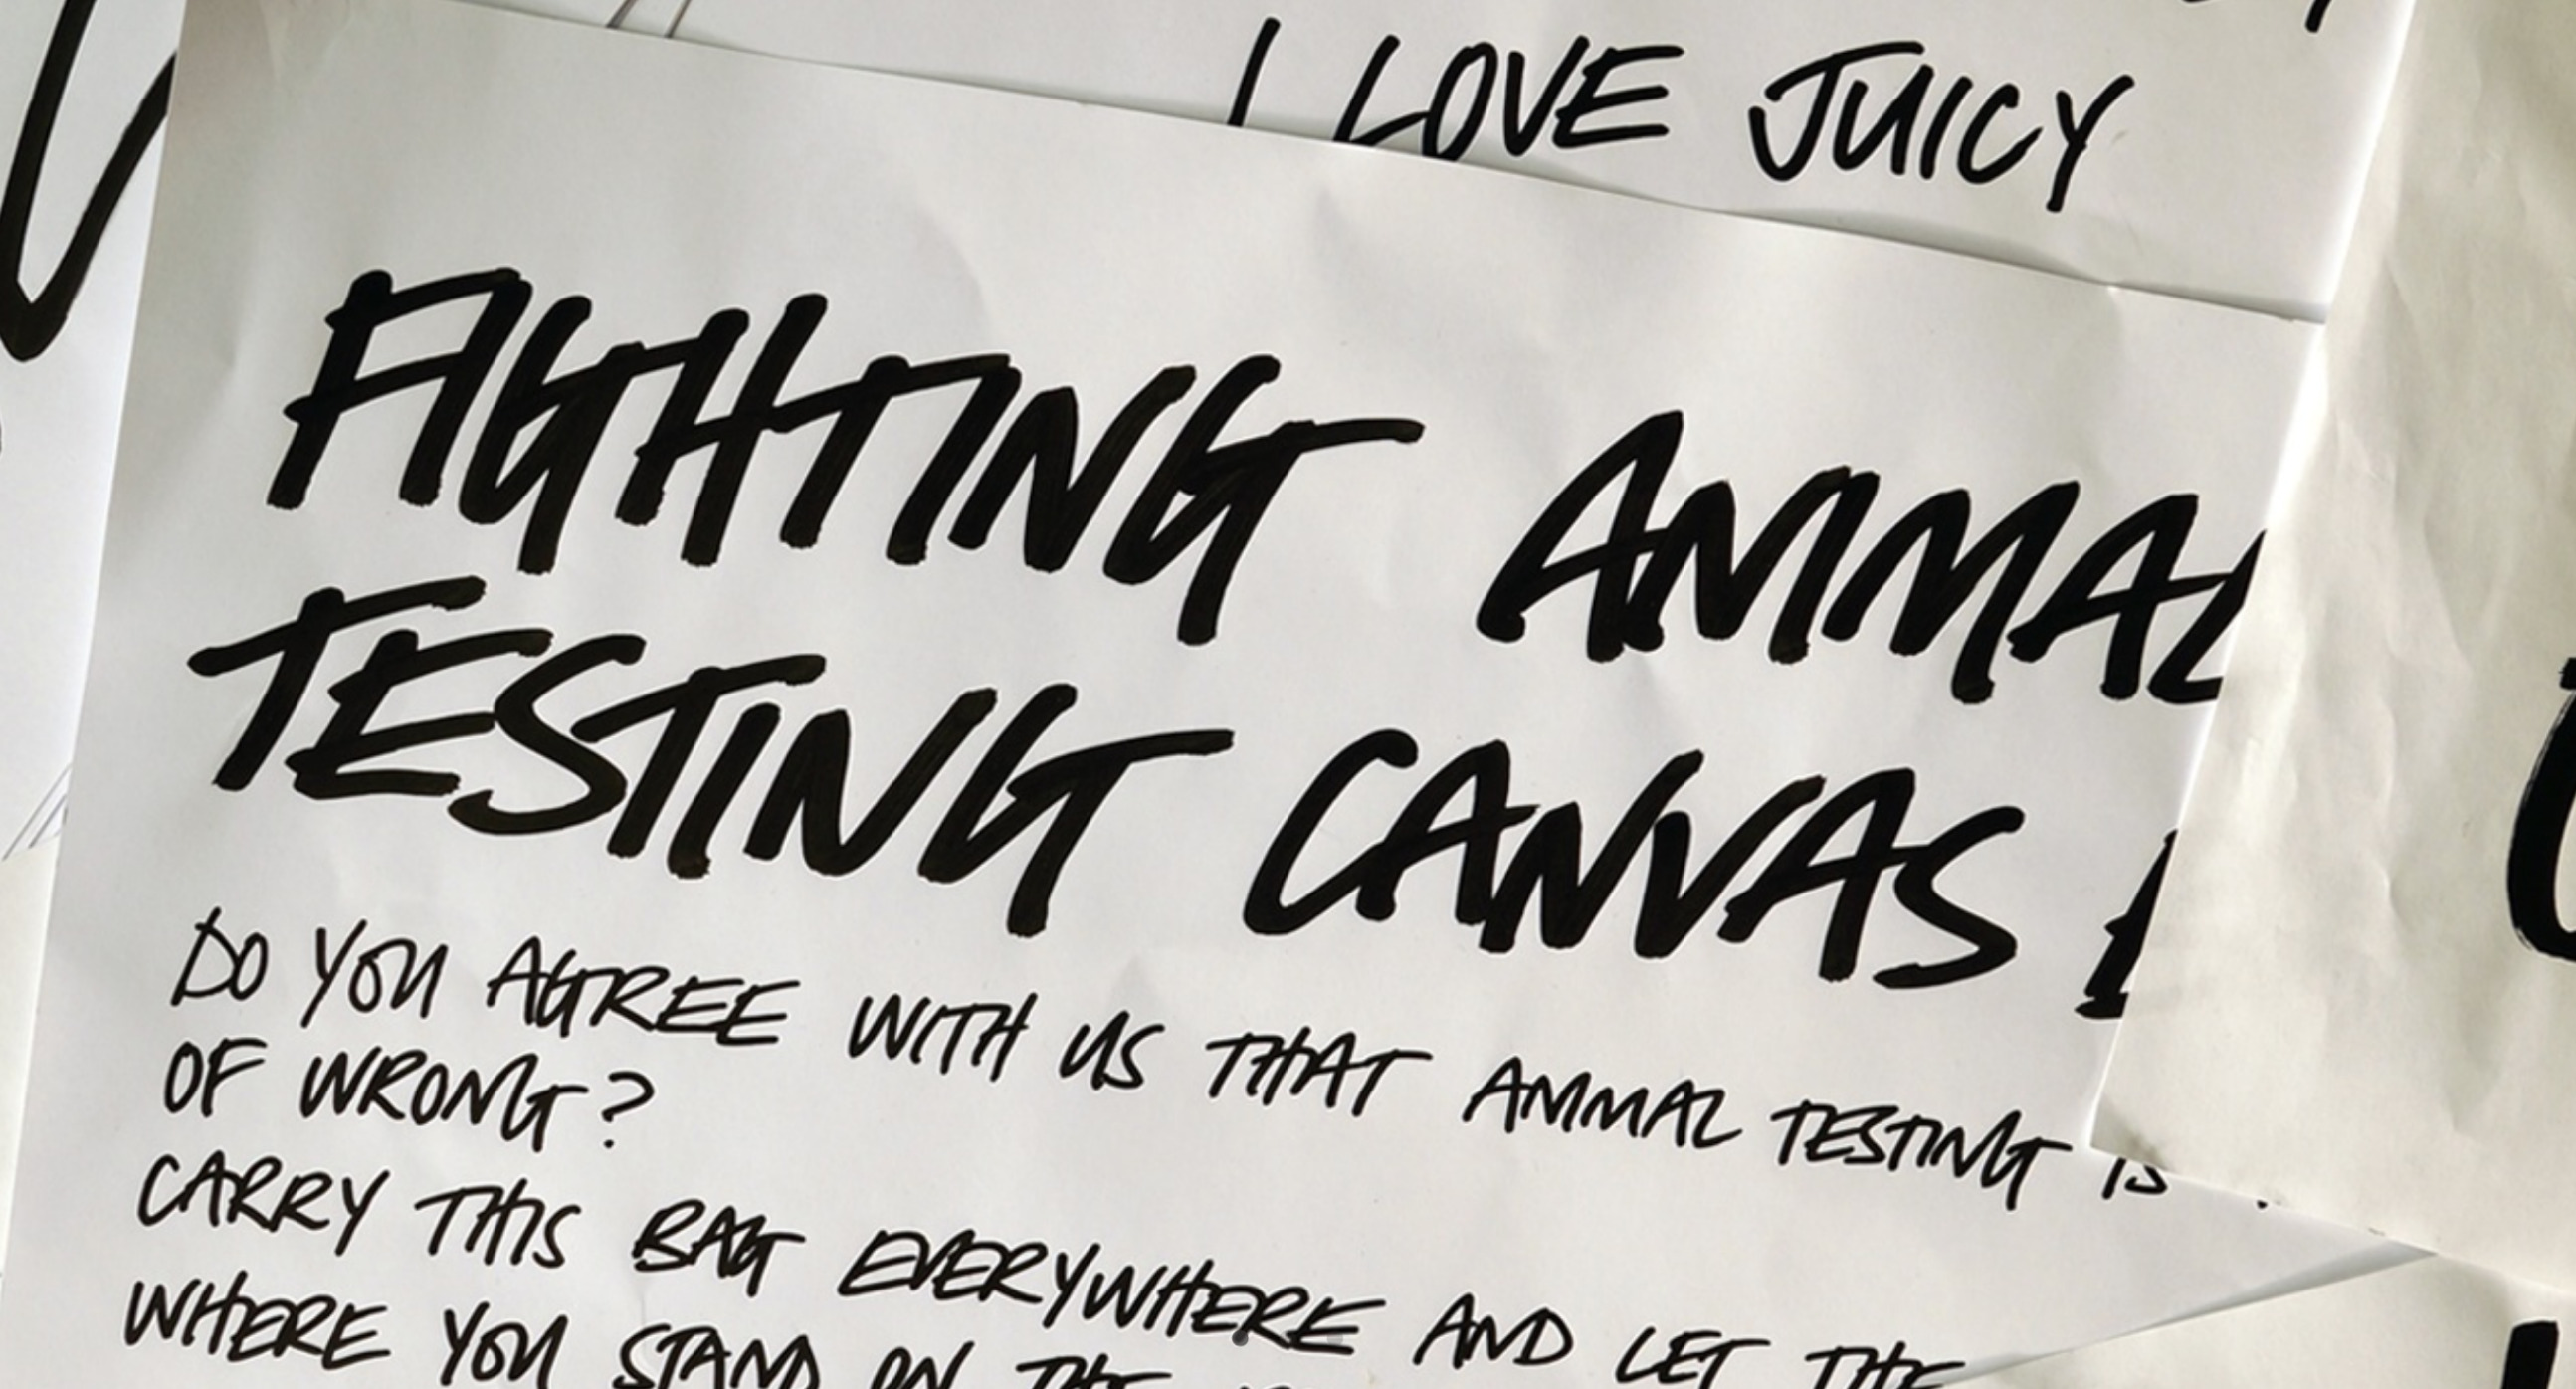 I LOVE JUICY
FIGHTING ANIMAL
TESTING CANVAS
DO YOU AGREE WITH US THAT ANIMAL TESTING IS
OF WRONG?
CARRY THIS BAG EVERYWHERE AND LET THE
WHERE YOU STAND ON THE